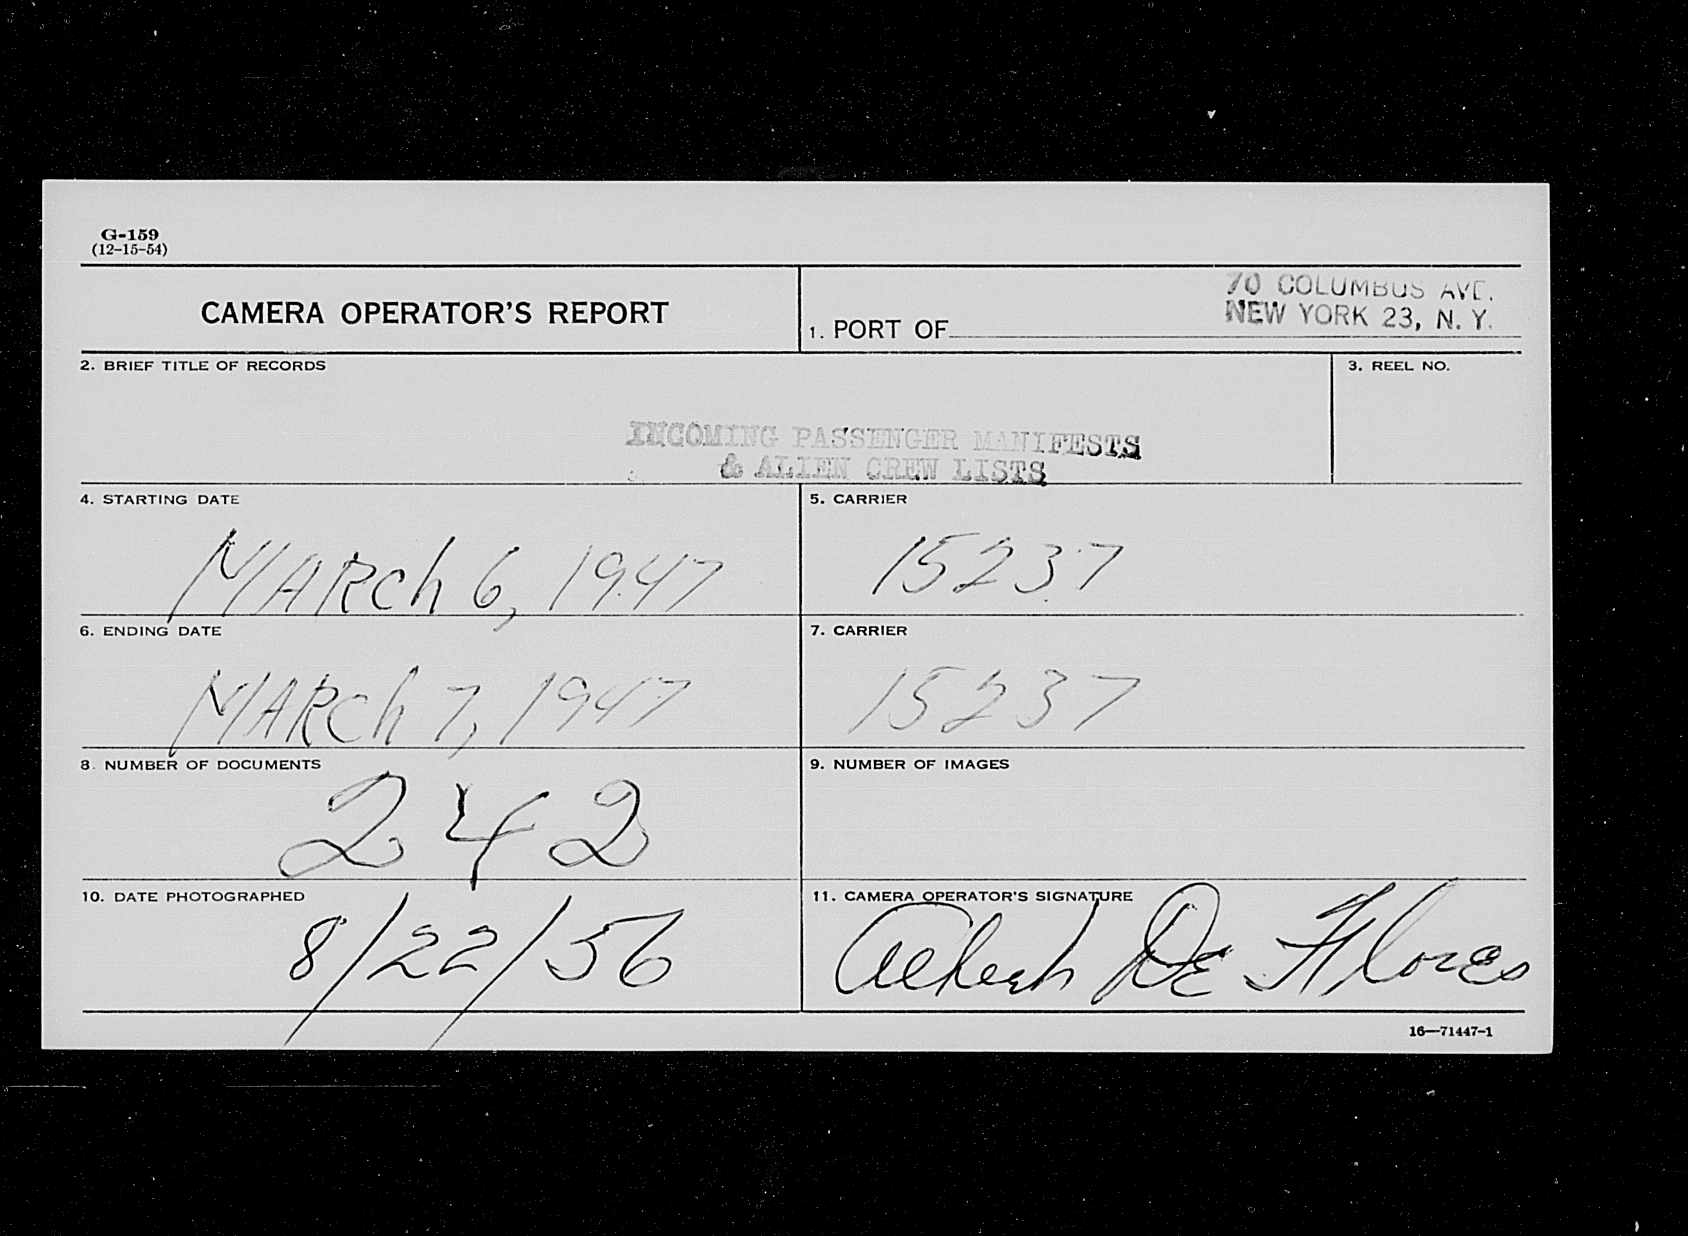 G-159
(12-15-54)
CAMERA OPERATOR'S REPORT
1. PORT OF
70 COLUMBUS AVE.
NEW YORK 23, N. Y.
2. BRIEF TITLE OF RECORDS
3. REEL NO.
INCOMING PASSENGER MANIFESTS
& ALIEN CREW LISTS
4. STARTING DATE
MARCh 6, 1947
5. CARRIER
15237
6. ENDING DATE
MARCh 7, 1947
7. CARRIER
15237
8. NUMBER OF DOCUMENTS
242
9. NUMBER OF IMAGES
10. DATE PHOTOGRAPHED
8/22/56
11. CAMERA OPERATOR'S SIGNATURE
De Flores
16—71447-1